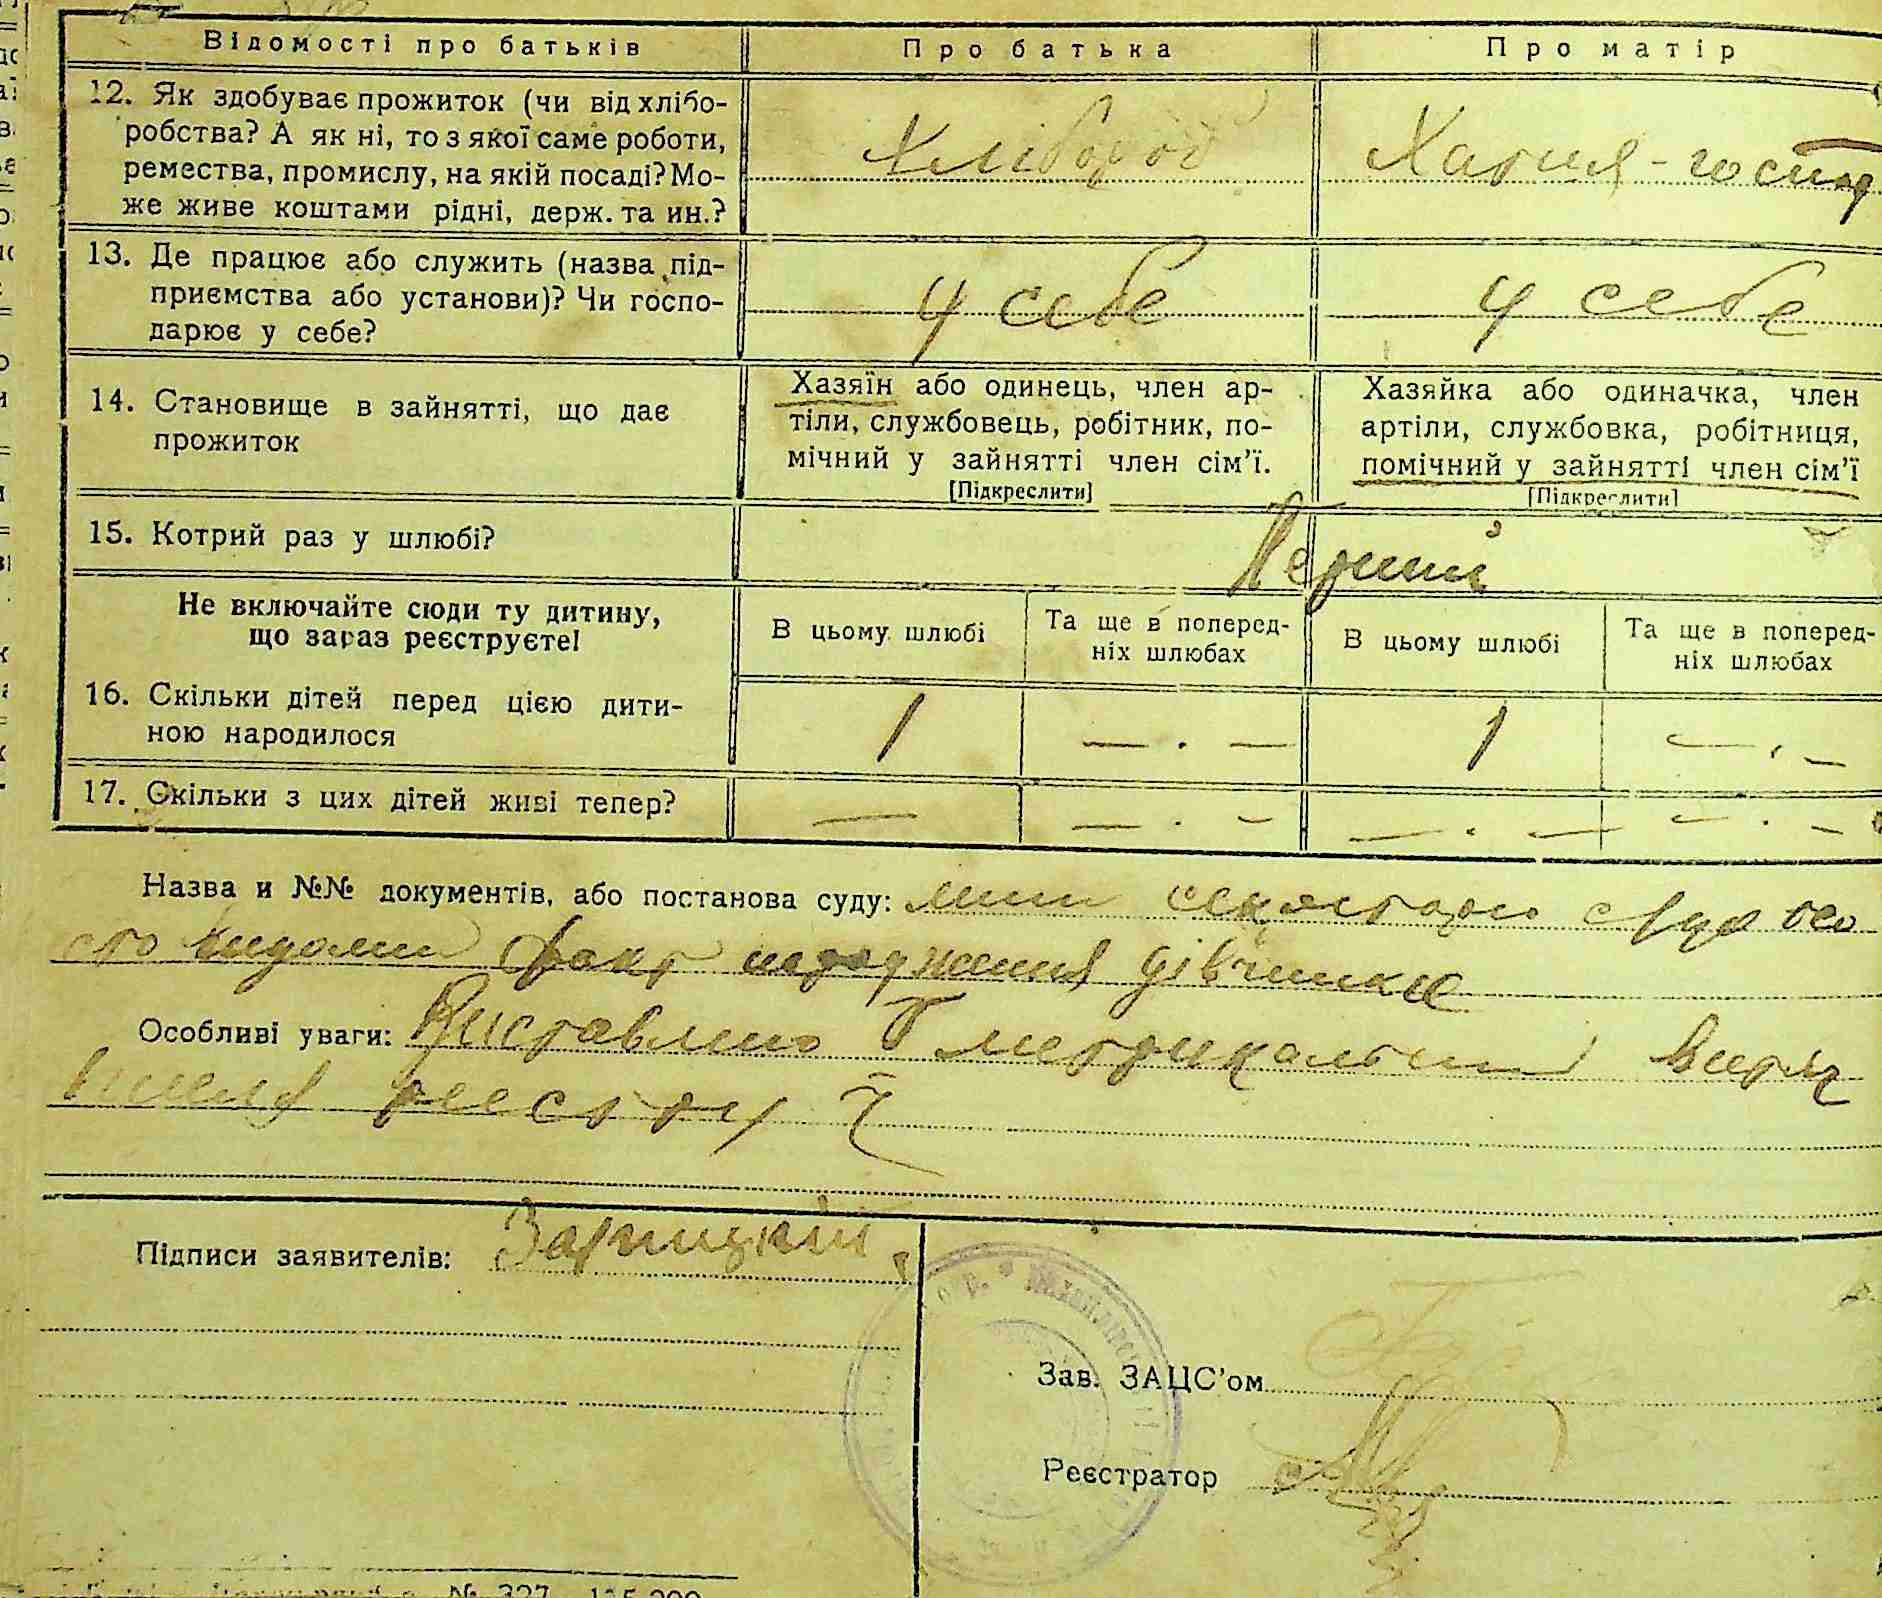 Відомості про батьків
Про батька
Про матір
12. Як здобуває прожиток (чи від хлібо-
робства? А як ні, то з якої саме роботи,
ремества, промислу, на якій посаді? Мо-
же живе коштами рідні, держ. та ин.?
Хлібороб
Хатня-господ
13. Де працює або служить (назва під-
приємства або установи)? Чи госпо-
дарює у себе?
У себе
У себе
14. Становище в зайнятті, що дає
прожиток
Хазяїн або одинець, член ар-
тіли, службовець, робітник, по-
мічний у зайнятті член сім'ї.
[Підкреслити]
Хазяйка або одиначка, член
артіли, службовка, робітниця,
помічний у зайнятті член сім'ї
[Підкреслити]
15. Котрий раз у шлюбі?
Перший
Не включайте сюди ту дитину,
що зараз реєструєте!
В цьому шлюбі
Та ще в поперед-
ніх шлюбах
В цьому шлюбі
Та ще в поперед-
ніх шлюбах
16. Скільки дітей перед цією дити-
ною народилося
1
— . —
1
— . —
17. Скільки з цих дітей живі тепер?
—
— . —
— . —
— . —
Назва и №№ документів, або постанова суду:
факт народження дівчинки
Особливі уваги: Виставлено
реєстру
Підписи заявителів: Зарицкий
Зав. ЗАЦС'ом
Реєстратор
№ 327